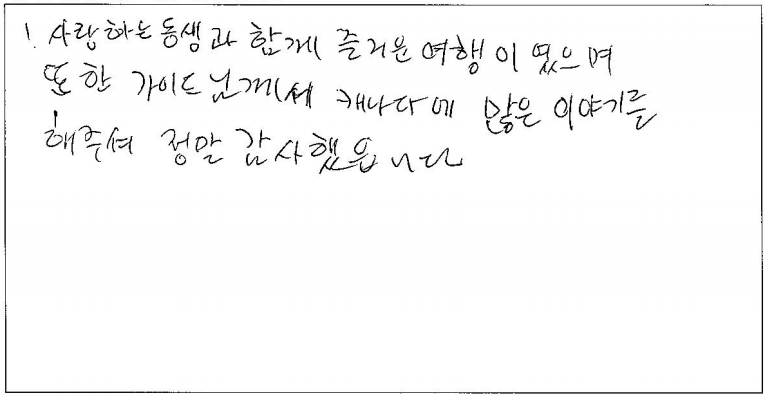 1. 사랑하는 동생과 함께 즐거운 여행이 였으며
또한 가이드님께서 캐나다에 많은 이야기를
해주셔 정말 감사했읍니다